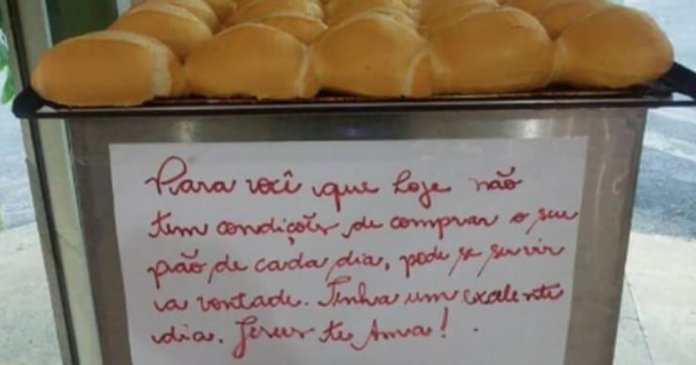 Para você que hoje não
tem condições de comprar o seu
pão de cada dia, pode se servir
a vontade. Tenha um excelente
dia. Jesus te Ama!